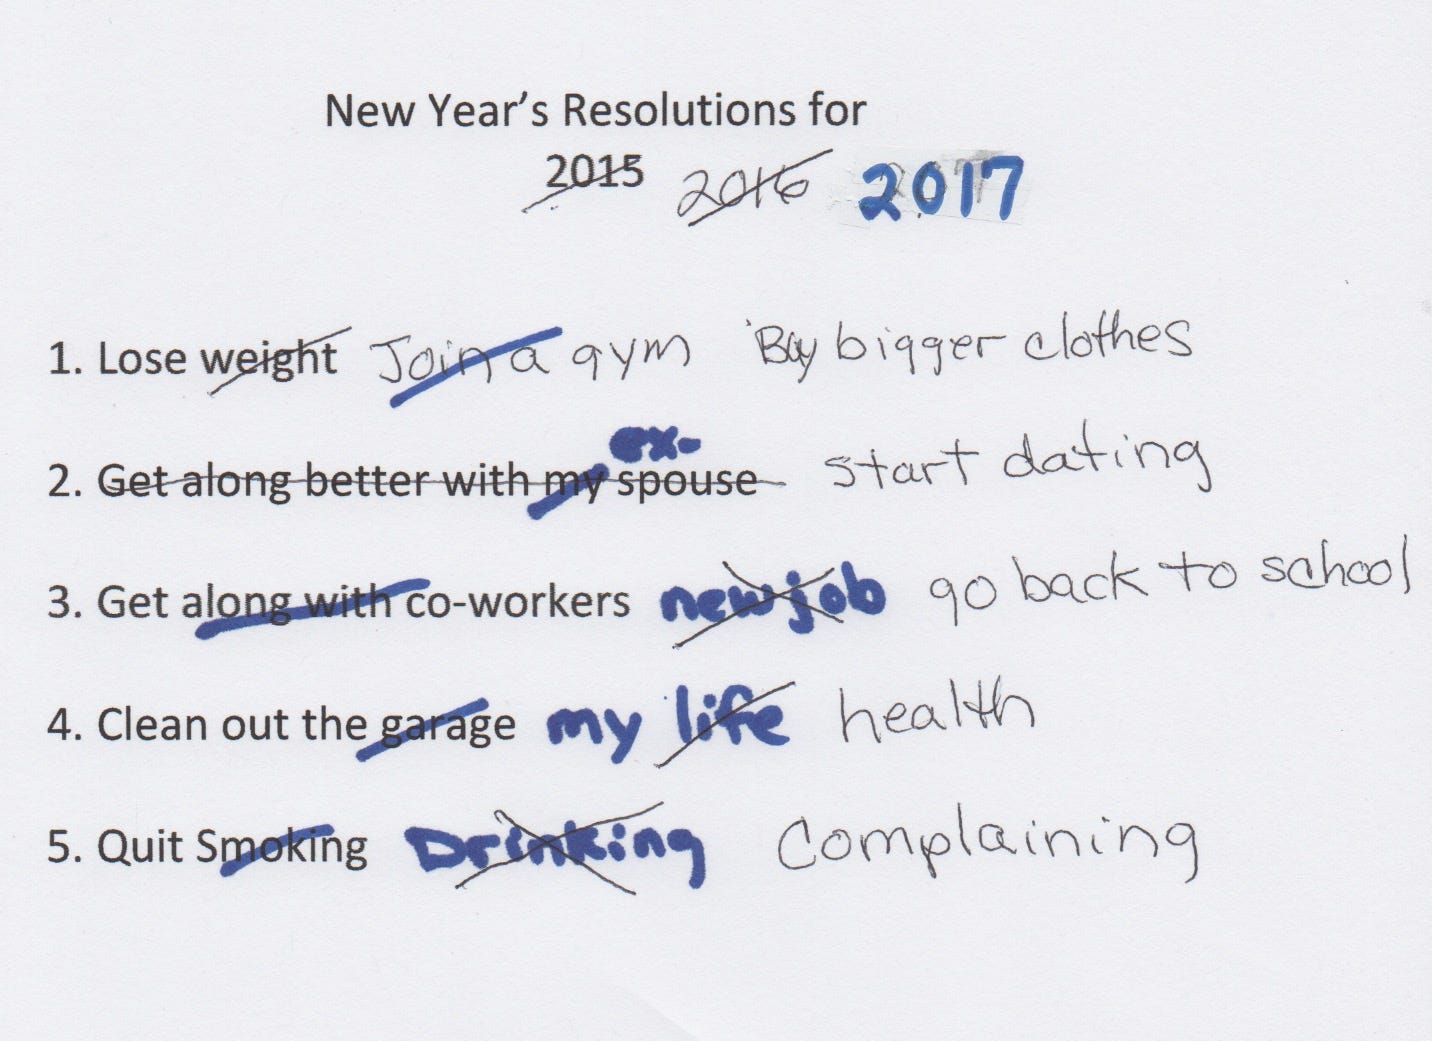 New Year's Resolutions for
2015 2016 2017
1. Lose weight Join a gym Buy bigger clothes
2. Get along better with my ex- spouse start dating
3. Get along with co-workers new job go back to school
4. Clean out the garage my life health
5. Quit Smoking Drinking Complaining